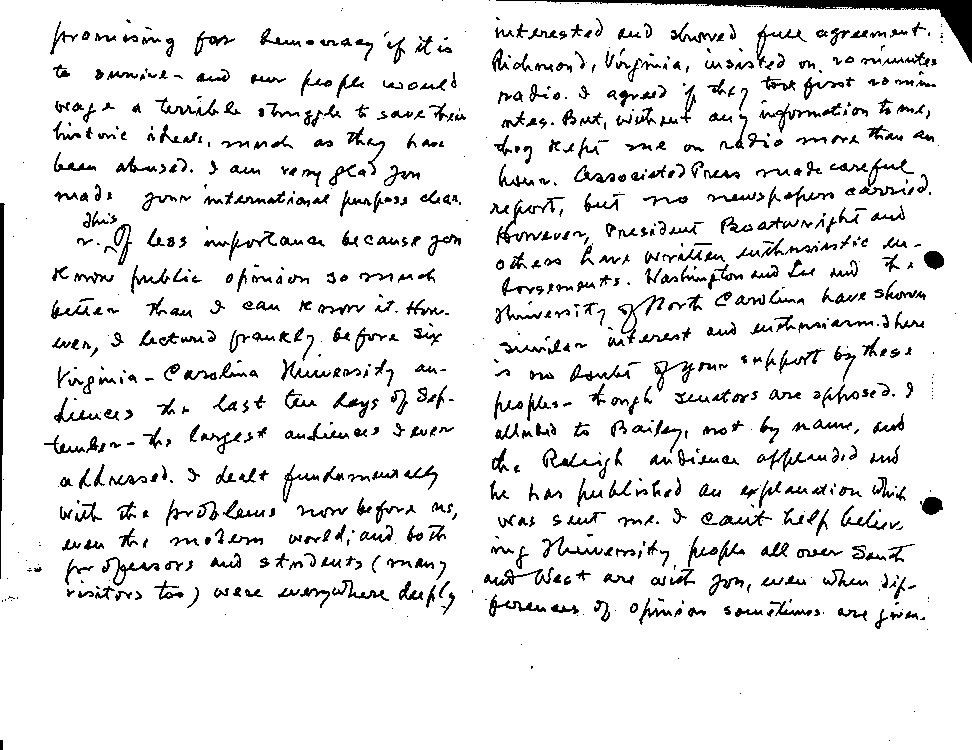 promising for democracy if it is
to survive - and our people would
wage a terrible struggle to save their
historic ideals, much as they have
been abused. I am very glad you
made your international purpose clear.
This
2. Of less importance because you
know public opinion so much
better than I can know it. How-
ever, I lectured frankly before six
Virginia-Carolina University au-
diences the last ten days of Sep-
tember - the largest audiences I ever
addressed. I dealt fundamentally
with the problems now before us,
even the modern world; and both
professors and students (many
visitors too) were everywhere deeply
interested and showed full agreement.
Richmond, Virginia, insisted on 20 minutes
radio. I agreed if they took first 20 min-
utes. But, without any information to me,
they kept me on radio more than an
hour. Associated Press made careful
report, but no newspapers carried.
However, President Boatwright and
others have written enthusiastic en-
dorsements. Washington and Lee and the
University of North Carolina have shown
similar interest and enthusiasm. There
is no doubt of your support by these
peoples - though senators are opposed. I
alluded to Bailey, not by name, and
the Raleigh audience applauded and
he has published an explanation which
was sent me. I can't help believ-
ing University people all over South
and West are with you, even when dif-
ferences of opinion sometimes are given.